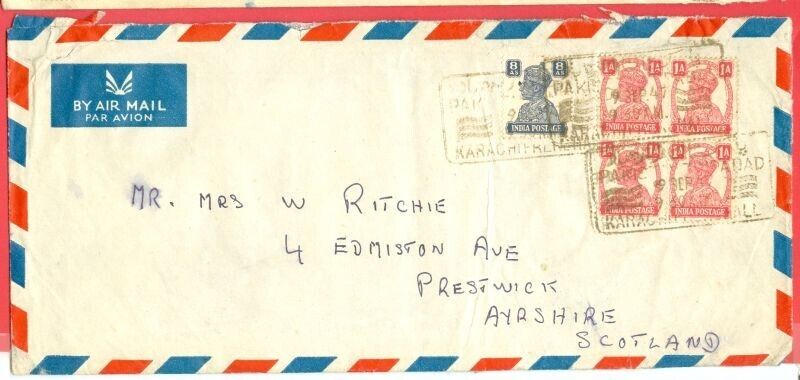 BY AIR MAIL
PAR AVION
8 AS 8 AS
INDIA POSTAGE
1A 1A
INDIA POSTAGE INDIA POSTAGE
1A 1A
INDIA POSTAGE INDIA POSTAGE
KARACHI
9 SEP
KARACHI
MR. MRS W RITCHIE
4 EDMISTON AVE
PRESTWICK
AYRSHIRE
SCOTLAND